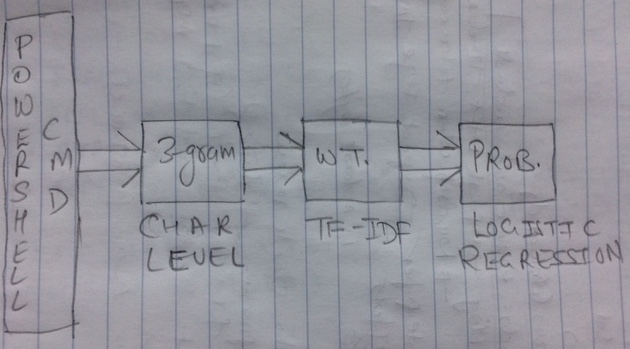 POWERSHELL
CMD
3-gram
CHAR
LEVEL
WT.
TF-IDF
PROB.
LOGISTIC
REGRESSION